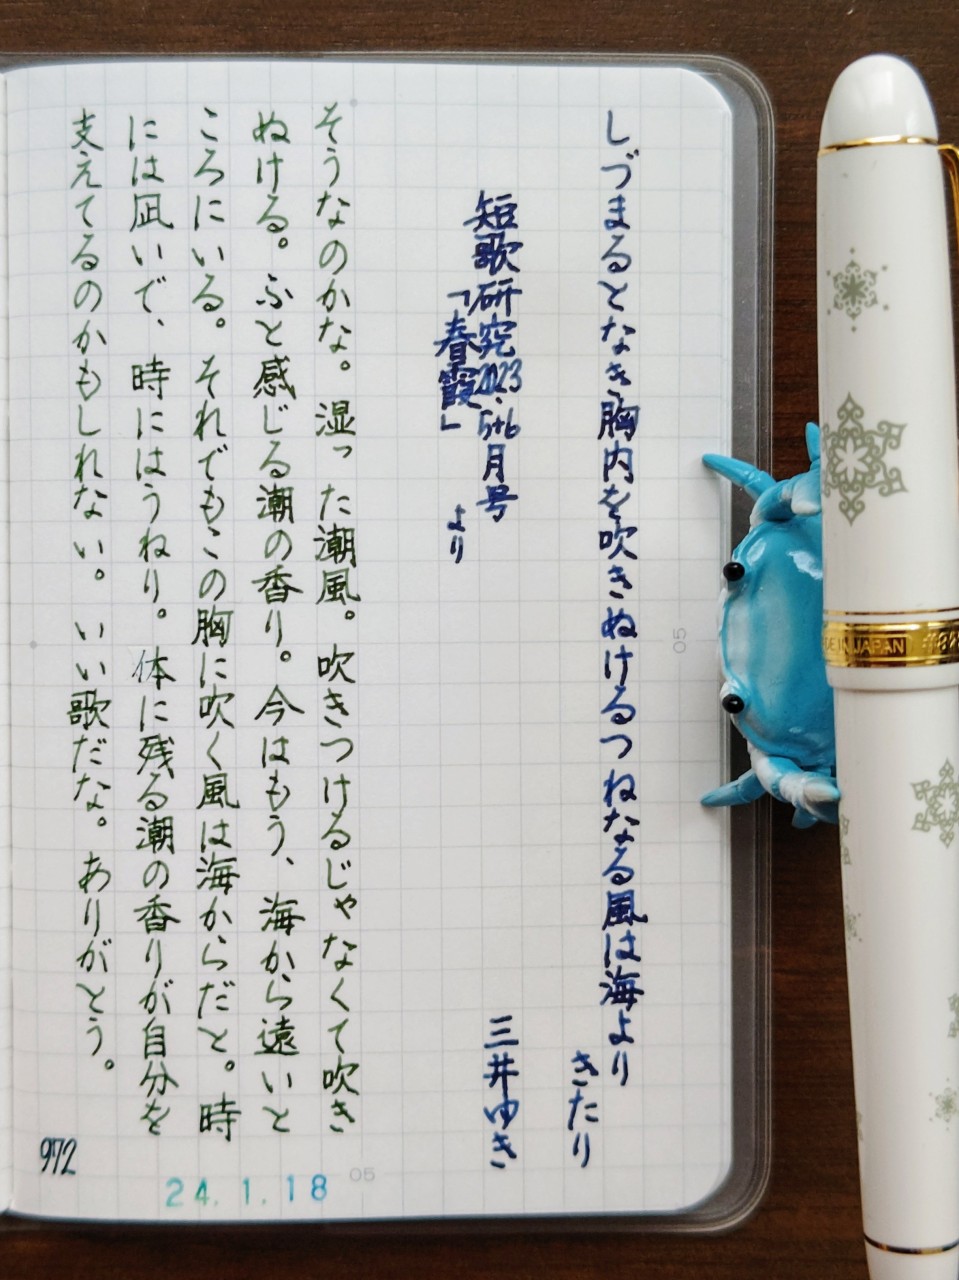 しづまるとなき胸内を吹きぬけるつねなる風は海より
きたり
短歌研究2023.5+6月号
「春霞」より
三井ゆき
そうなのかな。湿った潮風。吹きつけるじゃなくて吹き
ぬける。ふと感じる潮の香り。今はもう、海から遠いと
ころにいる。それでもこの胸に吹く風は海からだと。時
には凪いで、時にはうねり。体に残る潮の香りが自分を
支えてるのかもしれない。いい歌だな。ありがとう。
972
24.1.18
05
05
MADE IN JAPAN